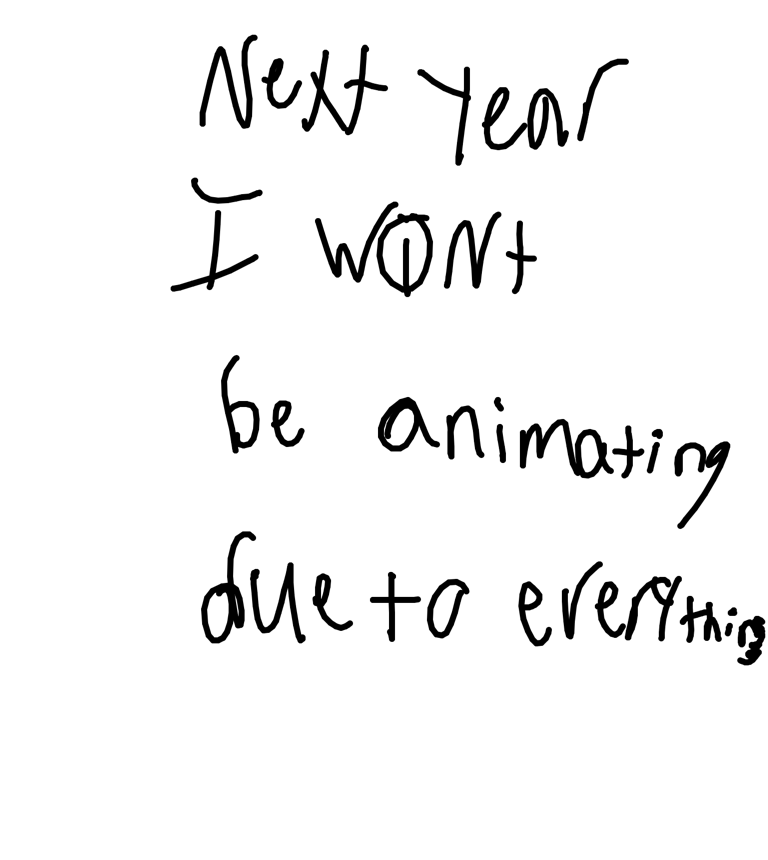 Next Year
I WONt
be animating
due to everything